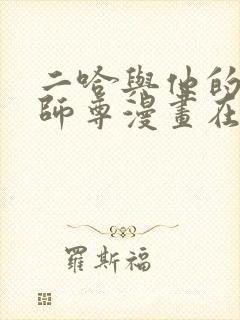 二哈與他的
師尊漫畫在
羅斯福